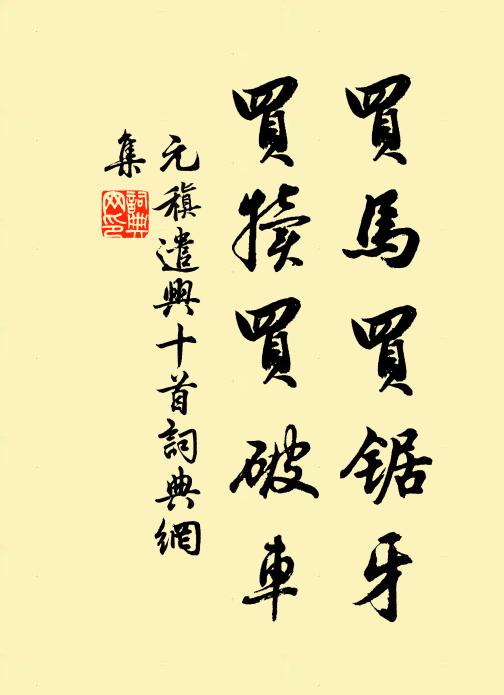 買馬買鋸牙
買犢買破車
元稹遣興十首詞典網
集
詞典网印